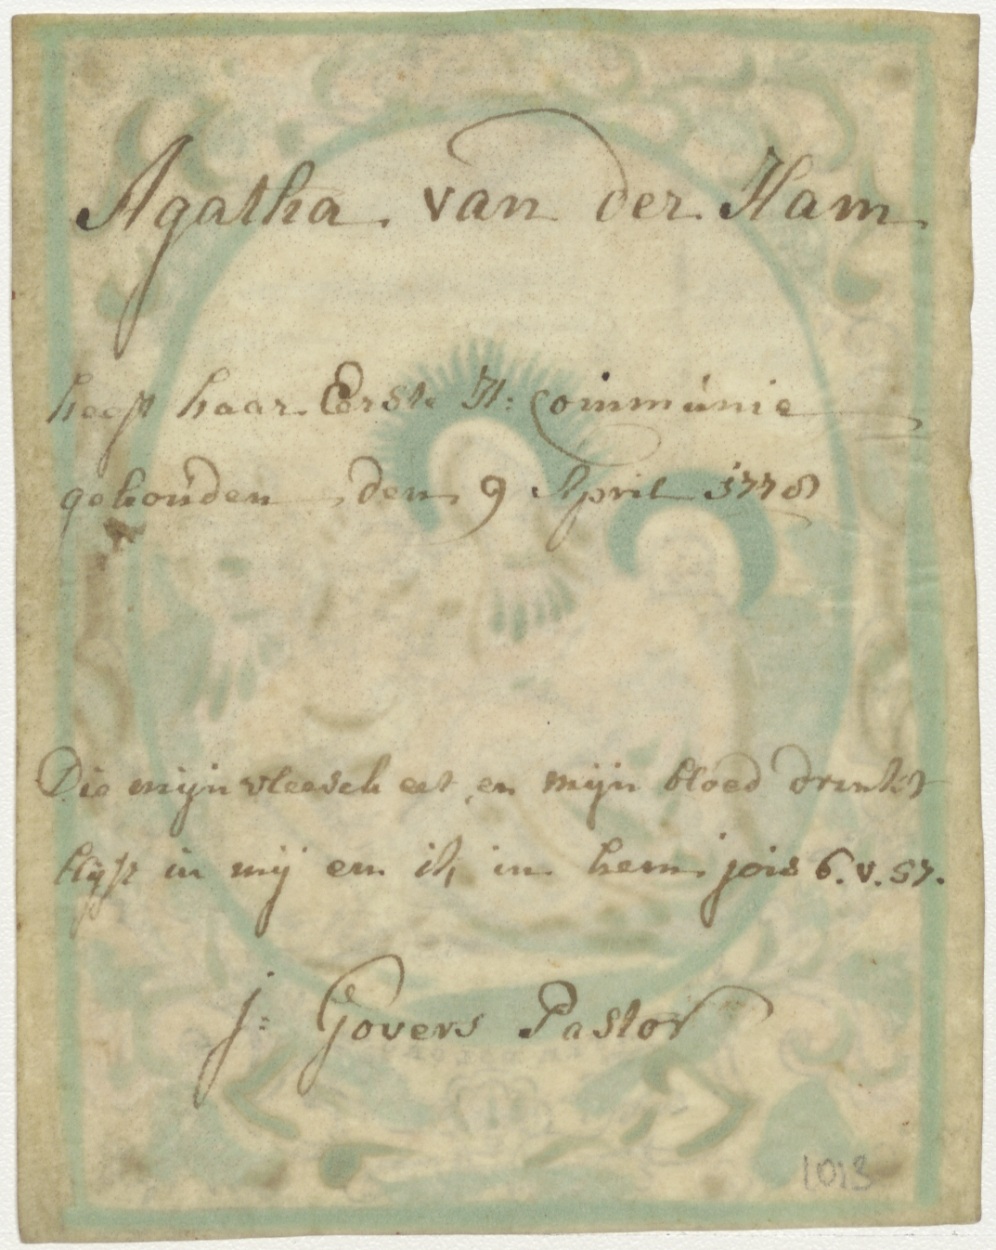 Agatha van der Ham
heeft haar Eerste H: Commúnie
gehoúden den 9 April 1778
Die mijn vleesch eet en mijn bloed drinkt
blijft in mij en ik in hem jois 6. v. 57.
j: Govers Pastor
1013